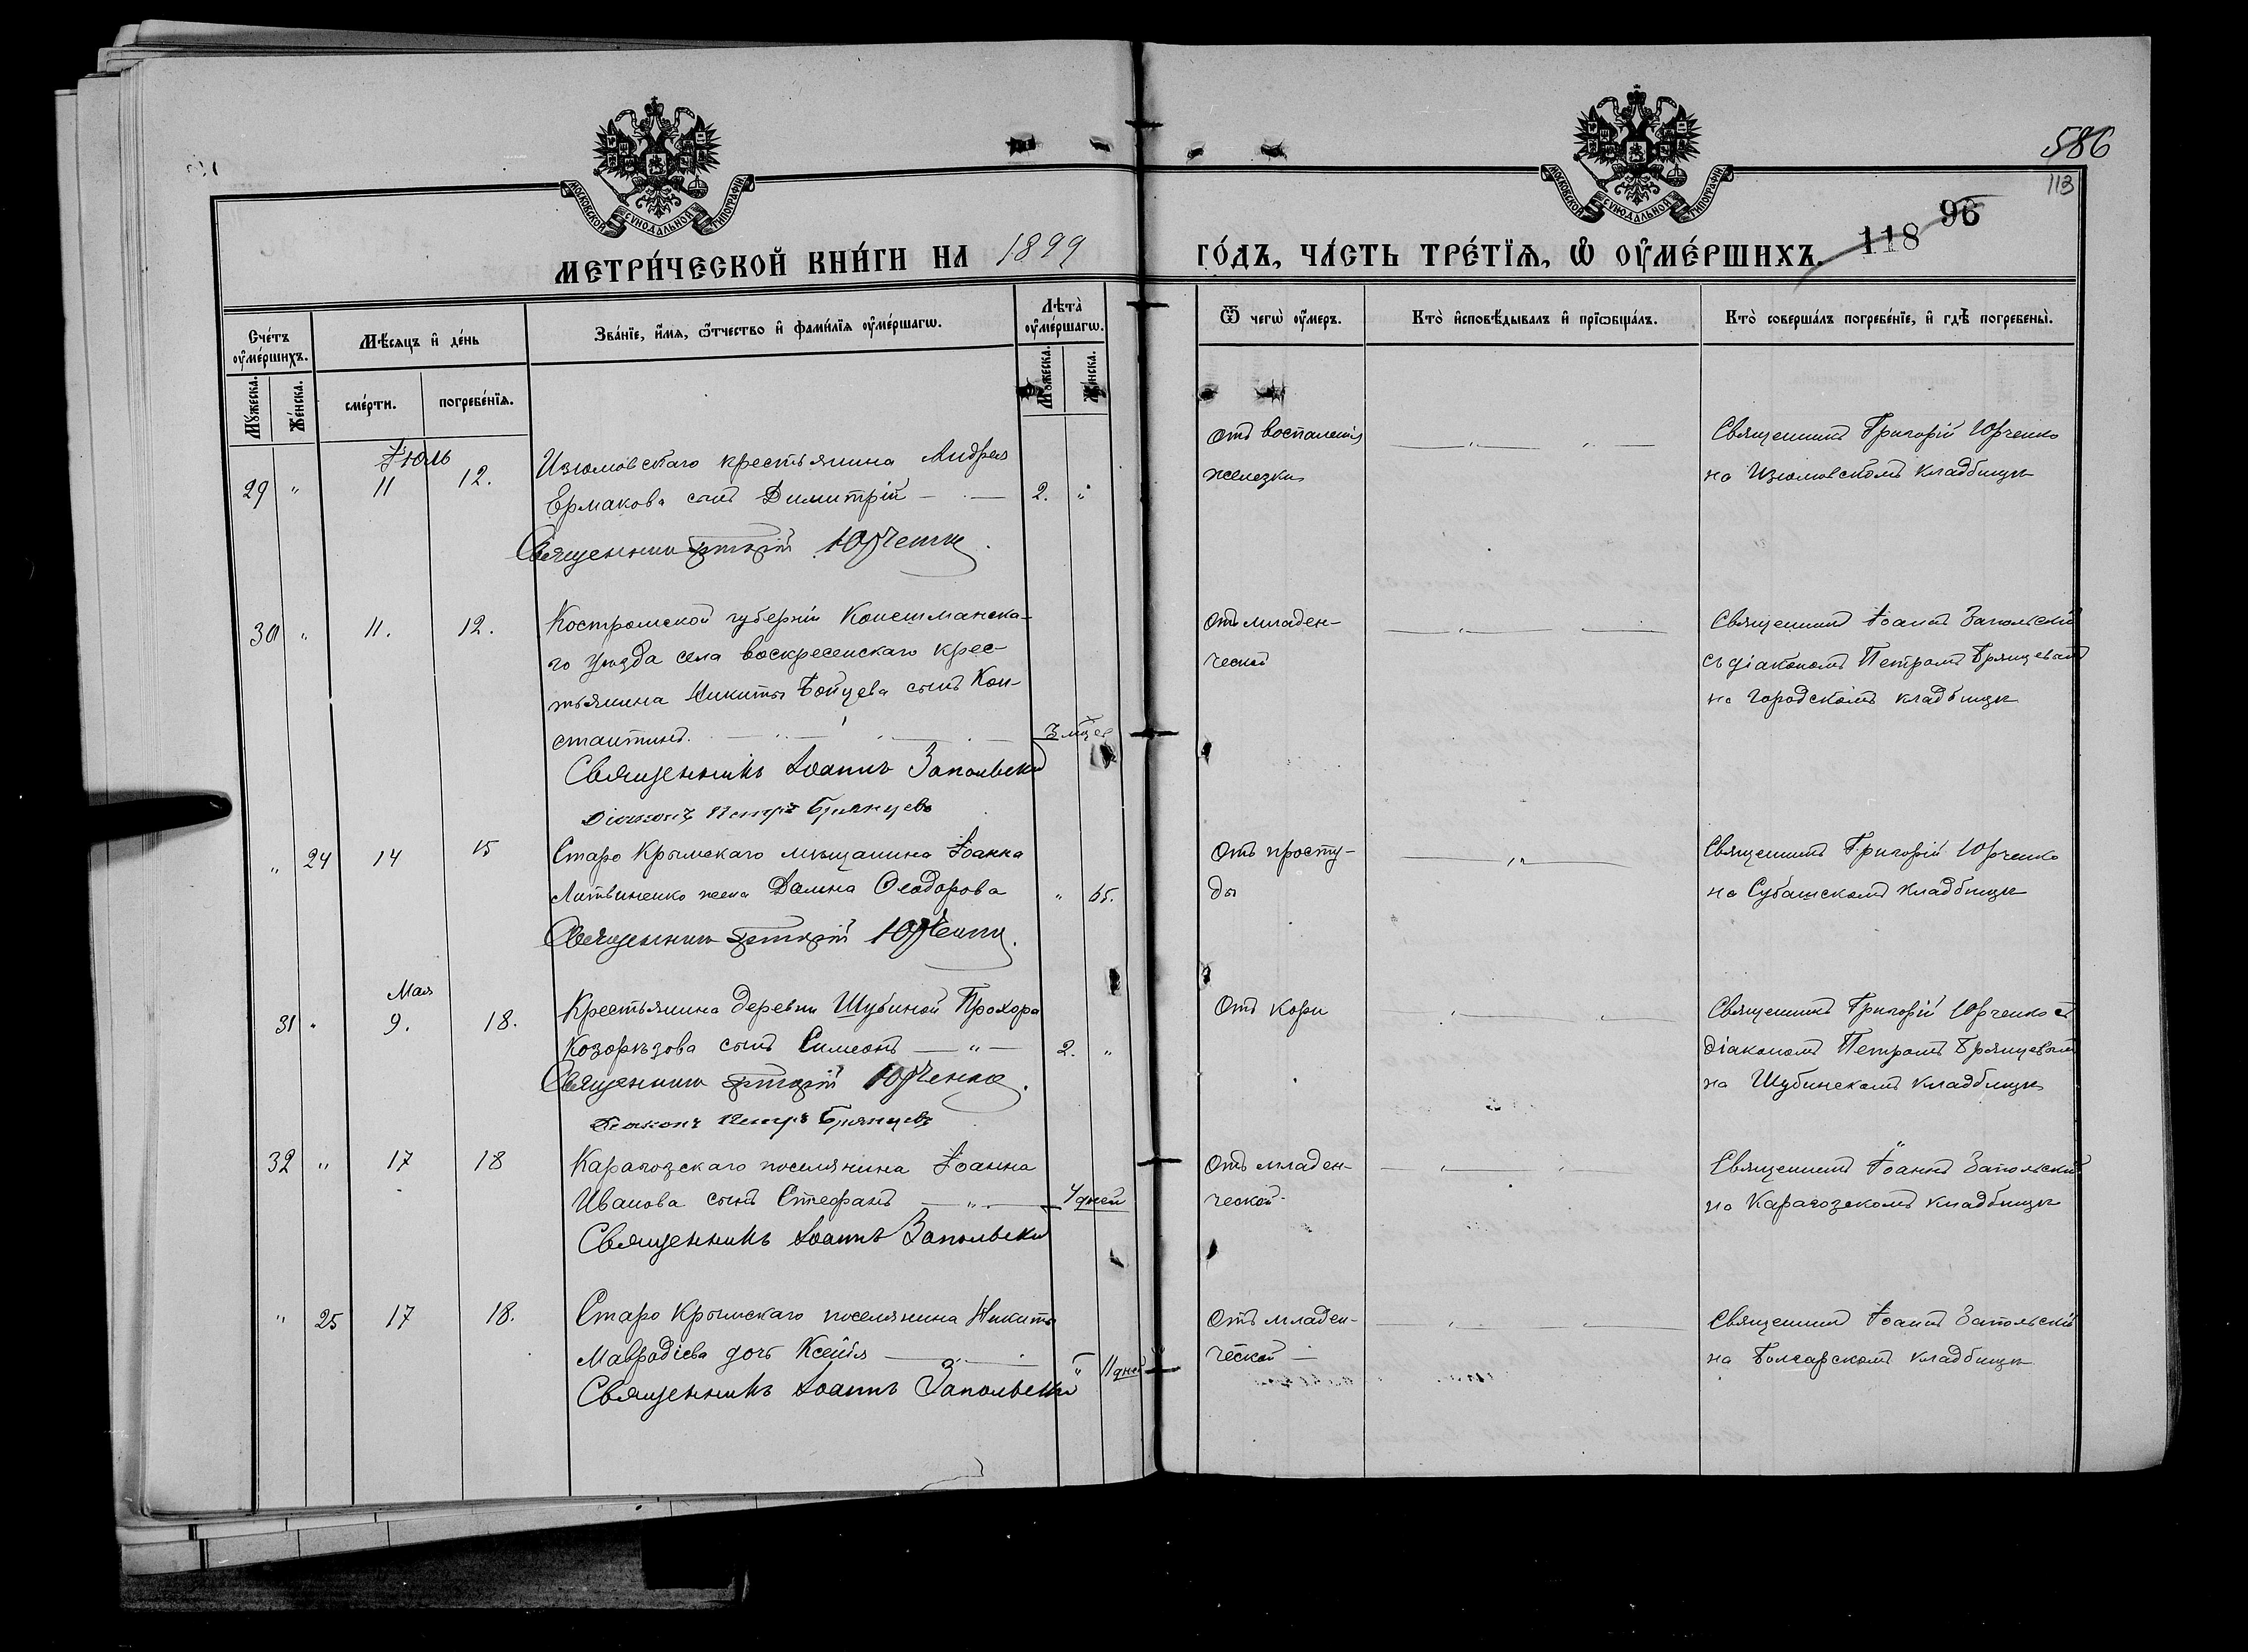 586
113
118 96
МОСКОВСКОЙ СѴНОДАЛЬНОЙ ТИПОГРАФІИ
МОСКОВСКОЙ СѴНОДАЛЬНОЙ ТИПОГРАФІИ
МЕТРИ́ЧЕСКОЙ КНИ́ГИ НА 1899 ГО́ДЪ, ЧА́СТЬ ТРЕ́ТЇѦ, Ѡ҆ ОУ҆МЕ́РШИХЪ.
Сче́тъ оу҆ме́ршихъ.
Мѣ́сѧцъ и҆ де́нь
Зва́нїе, и҆́мѧ, ѻ҆́тчество и҆ фами́лїѧ оу҆ме́ршагѡ.
Лѣта̀ оу҆ме́ршагѡ.
Ѿ чегѡ̀ оу҆́меръ.
Кто̀ и҆сповѣ́дывалъ и҆ прїѡбща́лъ.
Кто̀ соверша́лъ погребе́нїе, и҆ гдѣ̀ погребены̀.
Мꙋ́жеска. Же́нска.
сме́рти. погребе́нїѧ.
Мꙋ́жеска. Же́нска.
Іюль
29 " 11 12. Изюмовскаго крестьянина Андрея
Ермакова сынъ Димитрій 2. "
Священникъ Григорій Юрченко
Отъ воспаленія
железки
Священникъ Григорій Юрченко
на Изюмовскомъ кладбищѣ
30 " 11. 12. Костромской губерніи Кинешманска-
го уѣзда села воскресенскаго крес-
тьянина Никиты Бойцева сынъ Кон-
стантинъ. 3 мѣс
Священникъ Іоаннъ Запольскій
Діаконъ Петръ Брянцевъ
Отъ младен-
ческой
Священникъ Іоаннъ Запольскій
съ діакономъ Петромъ Брянцевымъ
на городскомъ кладбищѣ
" 24 14 15 Старо Крымскаго мѣщанина Іоанна
Литвиненко жена Домна Ѳеодорова " 65.
Священникъ Григорій Юрченко
Отъ просту-
ды
Священникъ Григорій Юрченко
на Субашскомъ кладбищѣ
Мая
31 " 9. 18. Крестьянина деревни Шубиной Прохора
Козорѣзова сынъ Симеонъ 2. "
Священникъ Григорій Юрченко.
Діаконъ Петръ Брянцевъ
Отъ кори
Священникъ Григорій Юрченко съ
діакономъ Петромъ Брянцевымъ
на Шубинскомъ кладбищѣ
32 " 17 18 Карагозскаго поселянина Іоанна
Иванова сынъ Стефанъ 4 дней
Священникъ Іоаннъ Запольскій
Отъ младен-
ческой
Священникъ Іоаннъ Запольскій
на Карагозскомъ кладбищѣ
" 25 17 18. Старо Крымскаго поселянина Никиты
Маврадіева дочь Ксенія " 11 дней
Священникъ Іоаннъ Запольскій
Отъ младен-
ческой
Священникъ Іоаннъ Запольскій
на Болгарскомъ кладбищѣ